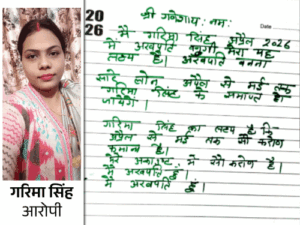 20
26
श्री गणेशाय: नमः
Date
मैं गरिमा सिंह, अप्रैल 2026
में अरबपति बनूगी मेरा यह
लक्ष्य है। अरबपति बनना
सारे लोन अप्रैल से मई तक
गरिमा सिंह के समाप्त हो
जायेंगे।
गरिमा सिंह का लक्ष्य है कि
अप्रैल से मई तक सौ करोण
कमाना है।
मेरे अकाउण्ट में सौ करोण है।
मैं अरबपति हूं।
मैं अरबपति हूं।
गरिमा सिंह
आरोपी